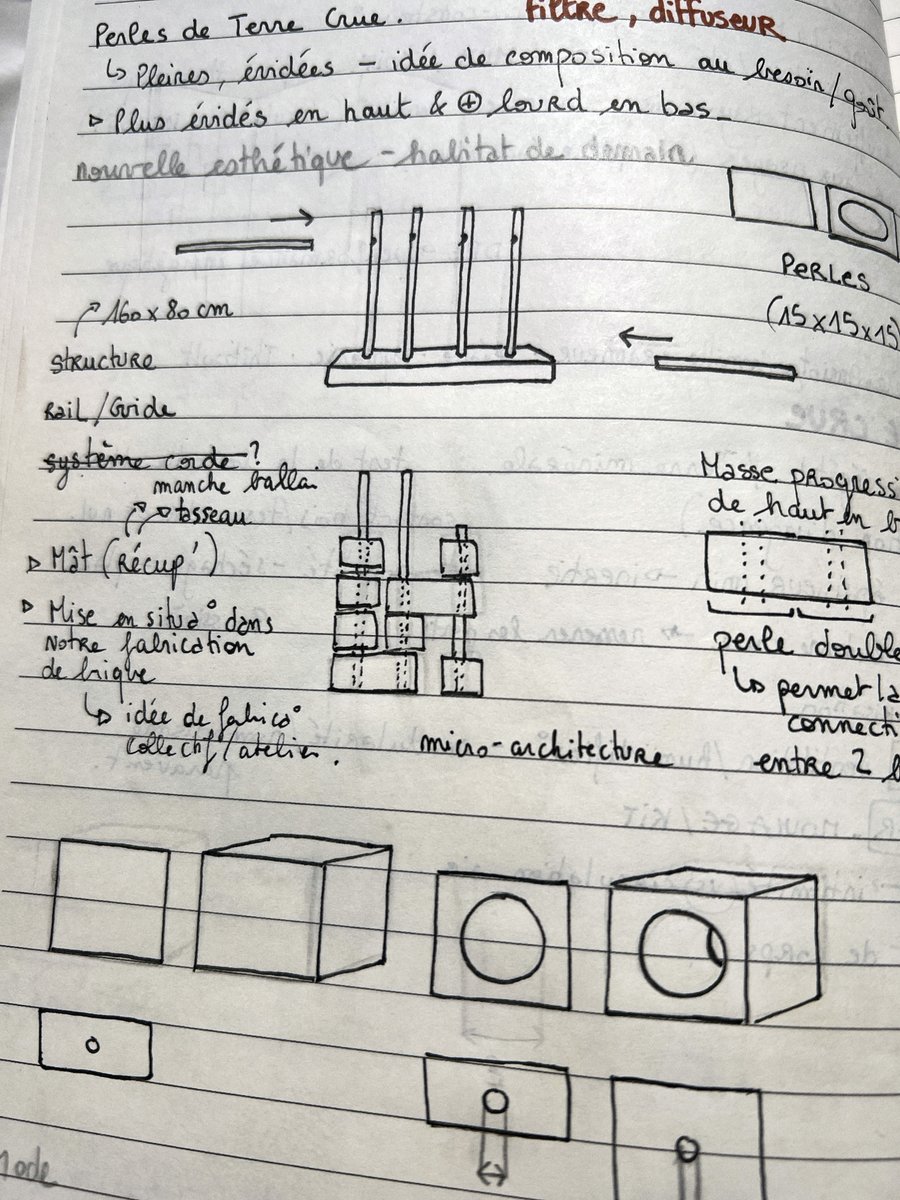 Perles de Terre Crue.
filtre, diffuseur
↳ Pleines, évidées – idée de composition au besoin/goût.
▹ Plus évidés en haut & ⊕ lourd en bas_
nouvelle esthétique – habitat de demain
PERLES
(15x15x15)
160 x 80 cm
structure
Rail/Guide
système corde ?
manche ballai
tasseau
▹ Mât (Récup')
▹ Mise en situa° dans
Notre fabrication
de brique
↳ idée de fabrica°
collectif/atelier.
micro-architecture
Masse progressi
de haut en b
perle double
↳ permet la
connecti
entre 2